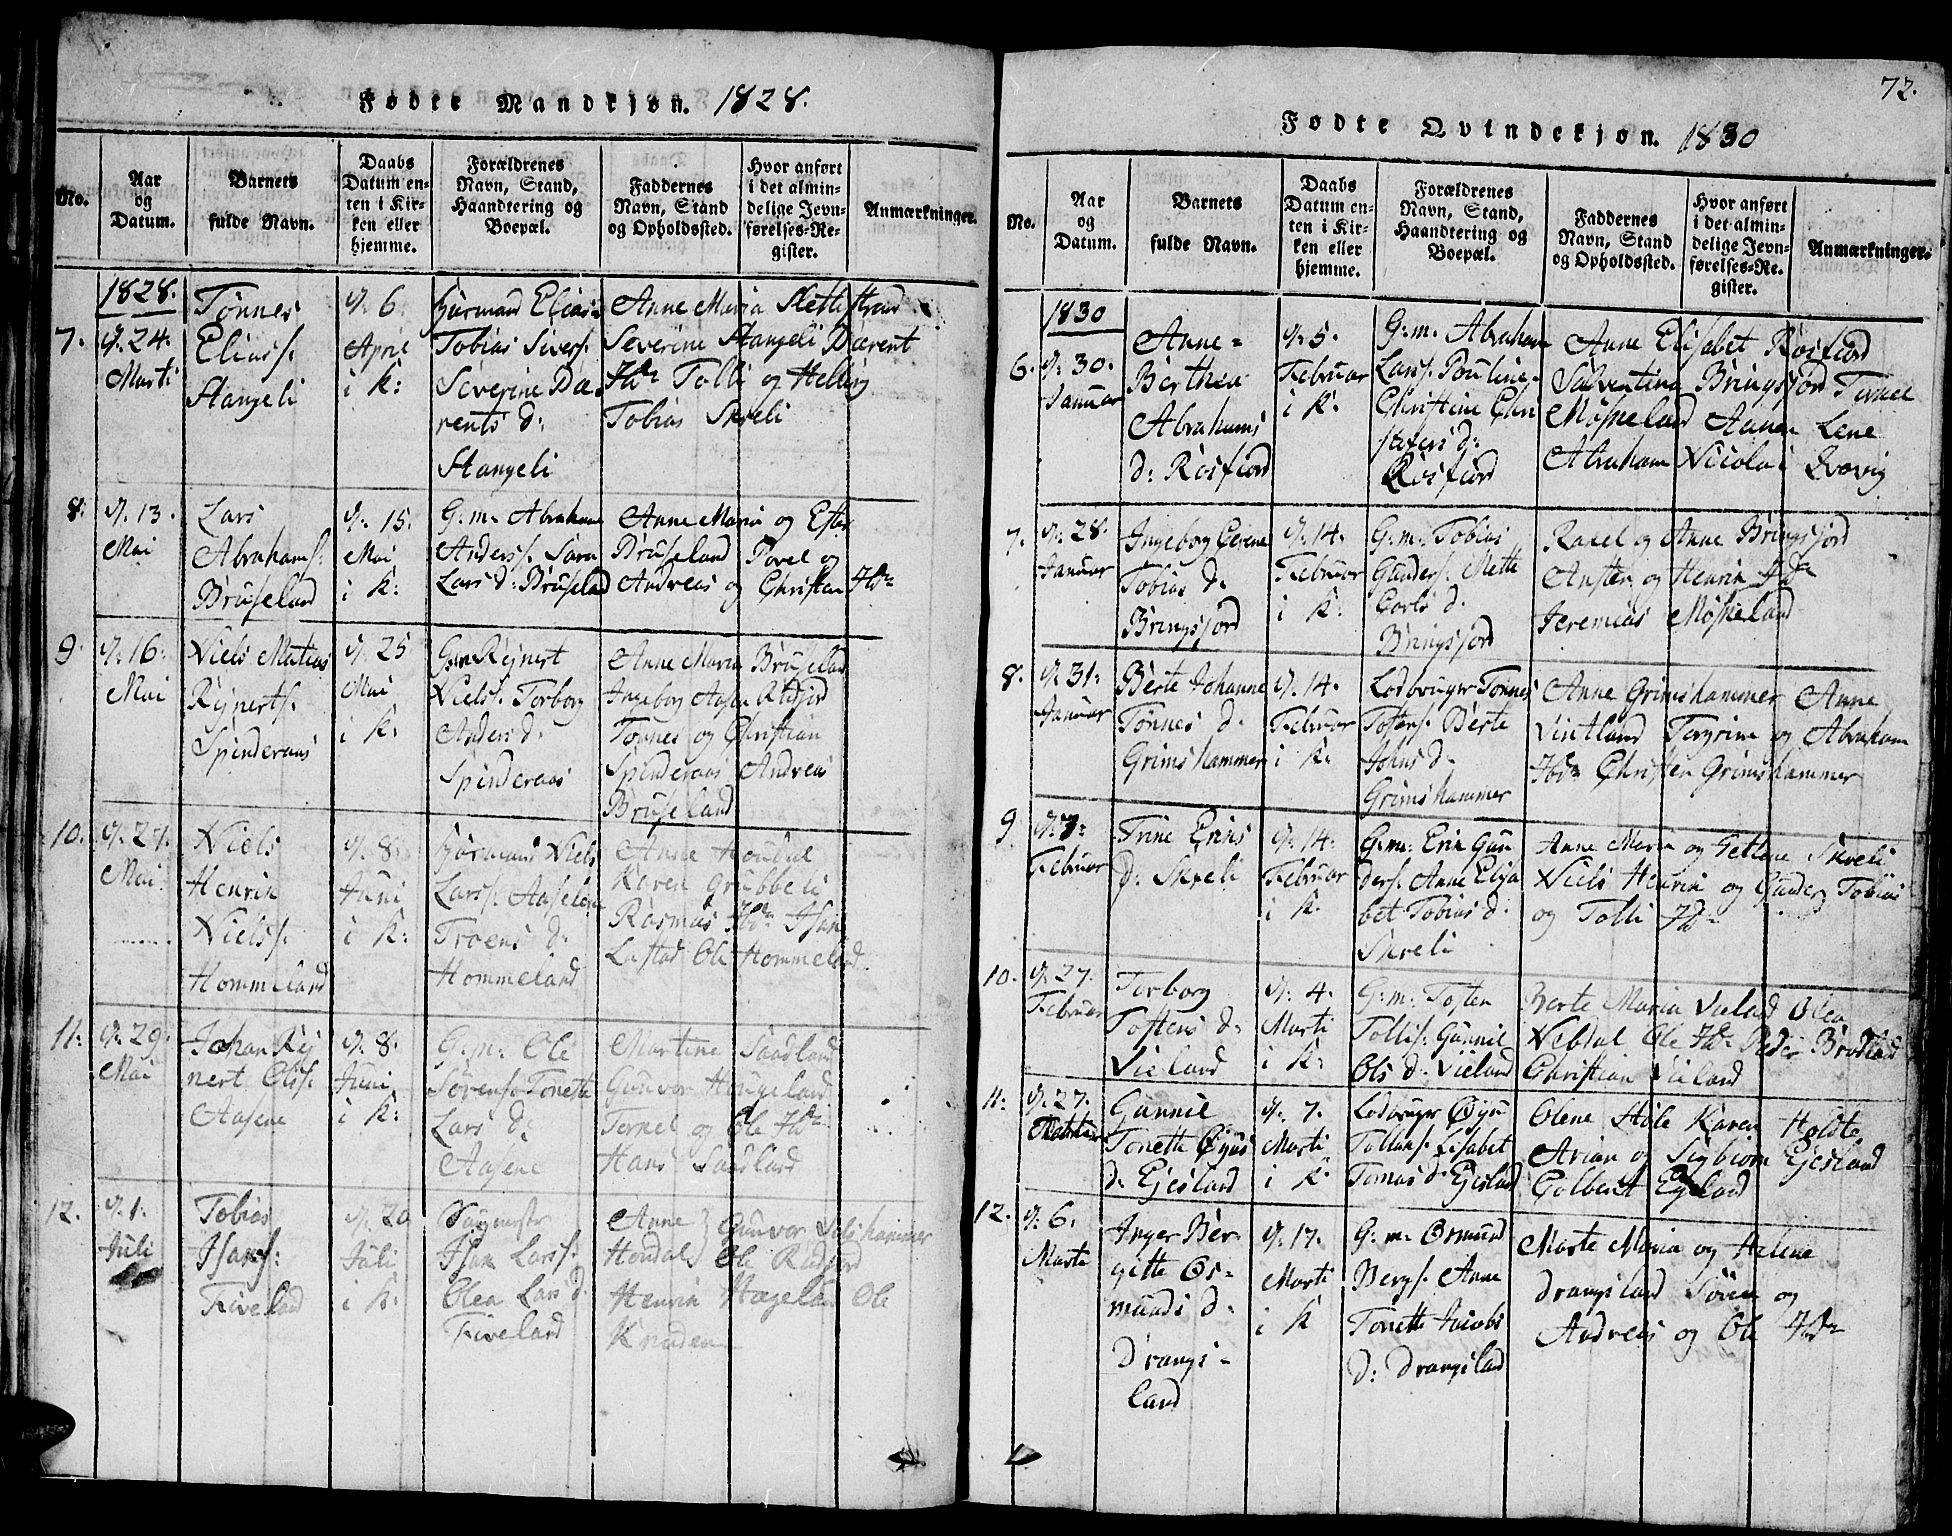 Fødte Mandkjøn. 1828.
No.
Aar
og
Datum.
Barnets
fulde Navn.
Daabs
Datum en-
ten i Kir-
ken eller
hjemme.
Forældrenes
Navn, Stand,
Haandtering og
Boepæl.
Faddernes
Navn, Stand
og Opholdssted.
Hvor anført
i det almin-
delige Jevn-
førelses-Re-
gister.
Anmærkninger.
1828.
7.
d. 24.
Marti
Tønnes
Eliass.
Stangeli
d. 6
April
i K:
Tobias Sivers.
Severine Da-
rents d:
Stangeli
Anne Maria
Severine Stangeli Darent
Tolli og
Tobias Skreli
8.
d. 13.
Mai
Lars
Abrahams.
Bruseland
d. 15.
Mai
i K:
G:m: Abraham
Anders. Sara
Lars d: Bruseland
Anne Maria og Ester
Bruseland Povel og
Andreas og Christen Ibdn
9.
d. 16.
Mai
Niels Matias
Rejnerts.
Spinderaas
d. 25
Mai
i K:
Gm Rejnert
Niels. Torborg
Anders d.
Spinderaas
Anne Maria Bruseland
Ingeborg Aasen Rødfjord
Tønnes og Christian
Spinderaas Andreas
Bruseland
10.
d. 27.
Mai
Niels
Henrik
Niels.
Hommeland
d. 8.
Juni
i K:
Niels
Lars.
d:
Hommeland
Anne Houdal
Karen Grubbeli
Rasmus Ibdn Isak
Ole Hommeland
11.
d. 29.
Mai
Johan Rej
nert Ols.
Aasene
d. 8.
Juni
i K:
G:m: Ole
Sørens. Tonette
Lars d:
Aasene
Martine Saadland
Gunvor Haugeland
og Ole Ibdn
Hans Saadland
12.
d. 1.
Juli
Tobias
Isaks:
Fiveland
d. 20
Juli
i K:
Isak Lars.
Olea Lars d.
Fiveland
Anne
Houdal
Gunvor
Ole Rødfjord
Henrik Hægeland Ole
Knuden
72.
Fødte Qvindekjøn. 1830
No.
Aar
og
Datum.
Barnets
fulde Navn.
Daabs
Datum en-
ten i Kir-
ken eller
hjemme.
Forældrenes
Navn, Stand,
Haandtering og
Boepæl.
Faddernes
Navn, Stand
og Opholdssted.
Hvor anført
i det almin-
delige Jevn-
førelses-Re-
gister.
Anmærkninger.
1830
6.
d. 30.
Januar
Anne=
Berthea
Abrahams
d: Rosfjord
d. 5.
Februar
i K.
G:m. Abraham
Lars. Pouline
Christine Chri
stofers d:
Rosfjord
Anne Elisabet Rosfjord
Salventina Bringsjord
Møskeland Lene
Abraham Nicolai
7.
d. 28.
Januar
Ingeborg Cerene
Tobias d.
Bringsjord
d. 14.
Februar
i K.
G:m: Tobias
Gunders. Mette
Carls d.
Bringsjord
Rakel og Anne Bringsjord
og Henrik Ibdn
Jeremias Møskeland
8.
d. 31.
Januar
Berte Johanne
Tønnes d.
Grimshammer
d. 14.
Februar
i K.
Lodbruger Tønnes
Tosters. Berte
Johns d.
Grimshammer
Anne Grimshammer Anne
Vintland Tergrim og Abraham
Ibdn Christen Grimshammer
9.
d. 3.
Februar
Trine Eriks
d. Skreli
d. 14.
Februar
i K.
G:m: Erik Gun
ders. Anne Elisa
bet Tobias d.
Skreli
Anne Maria og Skreli
Niels Henrik og Gunder Tobias
og Tolli Ibdn
10.
d. 27.
Februar
Torborg
Tostens d:
Vieland
d. 4.
Marti
i K:
G:m: Tosten
Tollis. Gunnil
Ols d. Vieland
Berte Maria Vieland Olea
Nebdal Ole Ibdn Peder
Christian Vieland
11.
d. 27.
Gunnil
Tonette Øyus
d. Ejesland
d. 7.
Marti
i K.
Lodbruger Øyu
Tollaks. Lisabet
Tomas d. Ejesland
Olene Karen Holte
Arian og Sigbiorn Ejesland
12.
d. 6.
Marti
Inger Ber-
gitte Os-
munds d:
Drangs-
land
d. 17.
Marti
i K
G: m: Osmund
Bergs. Anne
Tonette Jacobs
d: Drangsland
Marte Maria og Helene
Drangsland Søren og
Andreas og Ole Ibdn